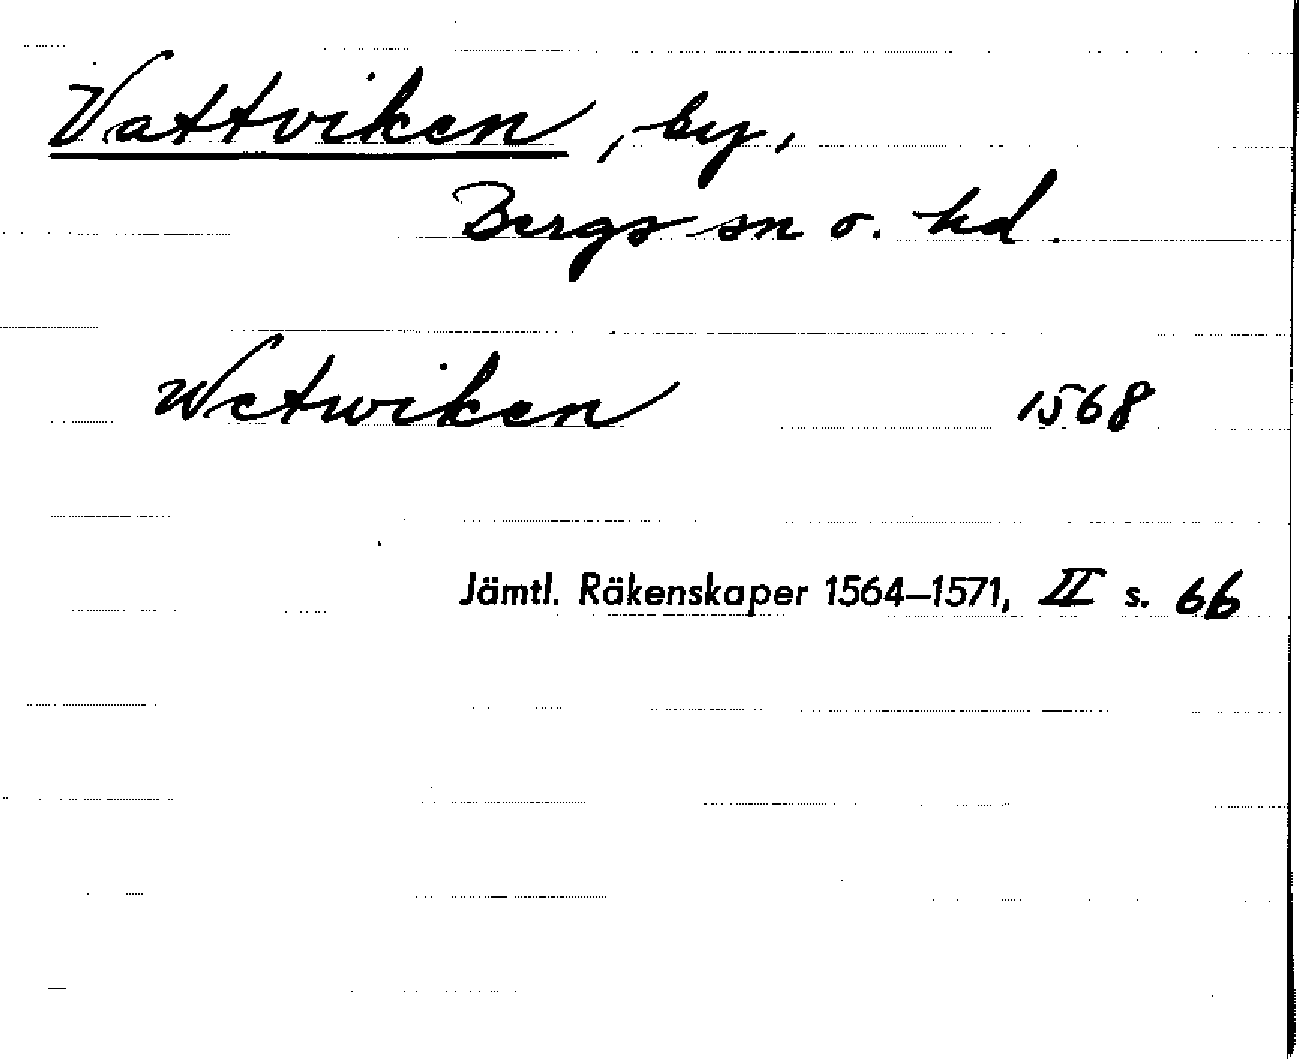 Vattviken, by,
Bergs sn o. hd.
Wetwiken 1568
Jämtl. Räkenskaper 1564–1571, II s. 66